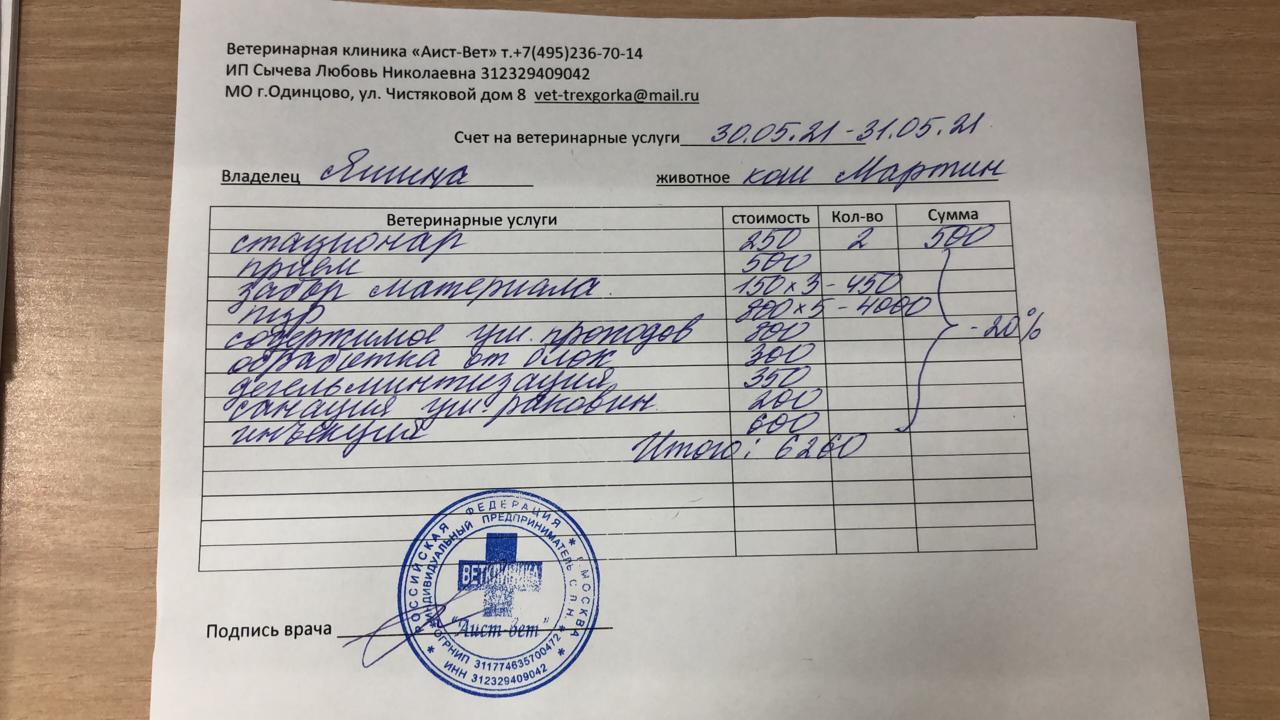 Ветеринарная клиника «Аист-Вет» т.+7(495)236-70-14
ИП Сычева Любовь Николаевна 312329409042
МО г.Одинцово, ул. Чистяковой дом 8 vet-trexgorka@mail.ru
Счет на ветеринарные услуги 30.05.21-31.05.21
Владелец Яшина животное кот Мартин
Ветеринарные услуги стоимость Кол-во Сумма
стационар 250 2 500
приём 500
забор материала 150×3-450
пцр 800×5-4000
содержимое уш. проходов 800
обработка от блох 300
дегельминтизация 350
санация уш. раковин 200
инъекция 600
-20%
Итого: 6260
Подпись врача
РОССИЙСКАЯ ФЕДЕРАЦИЯ * Г.МОСКВА *
ИНДИВИДУАЛЬНЫЙ ПРЕДПРИНИМАТЕЛЬ С.Л.Н.
ВЕТКЛИНИКА
"Аист-вет"
ОГРНИП 311774635700472
ИНН 312329409042